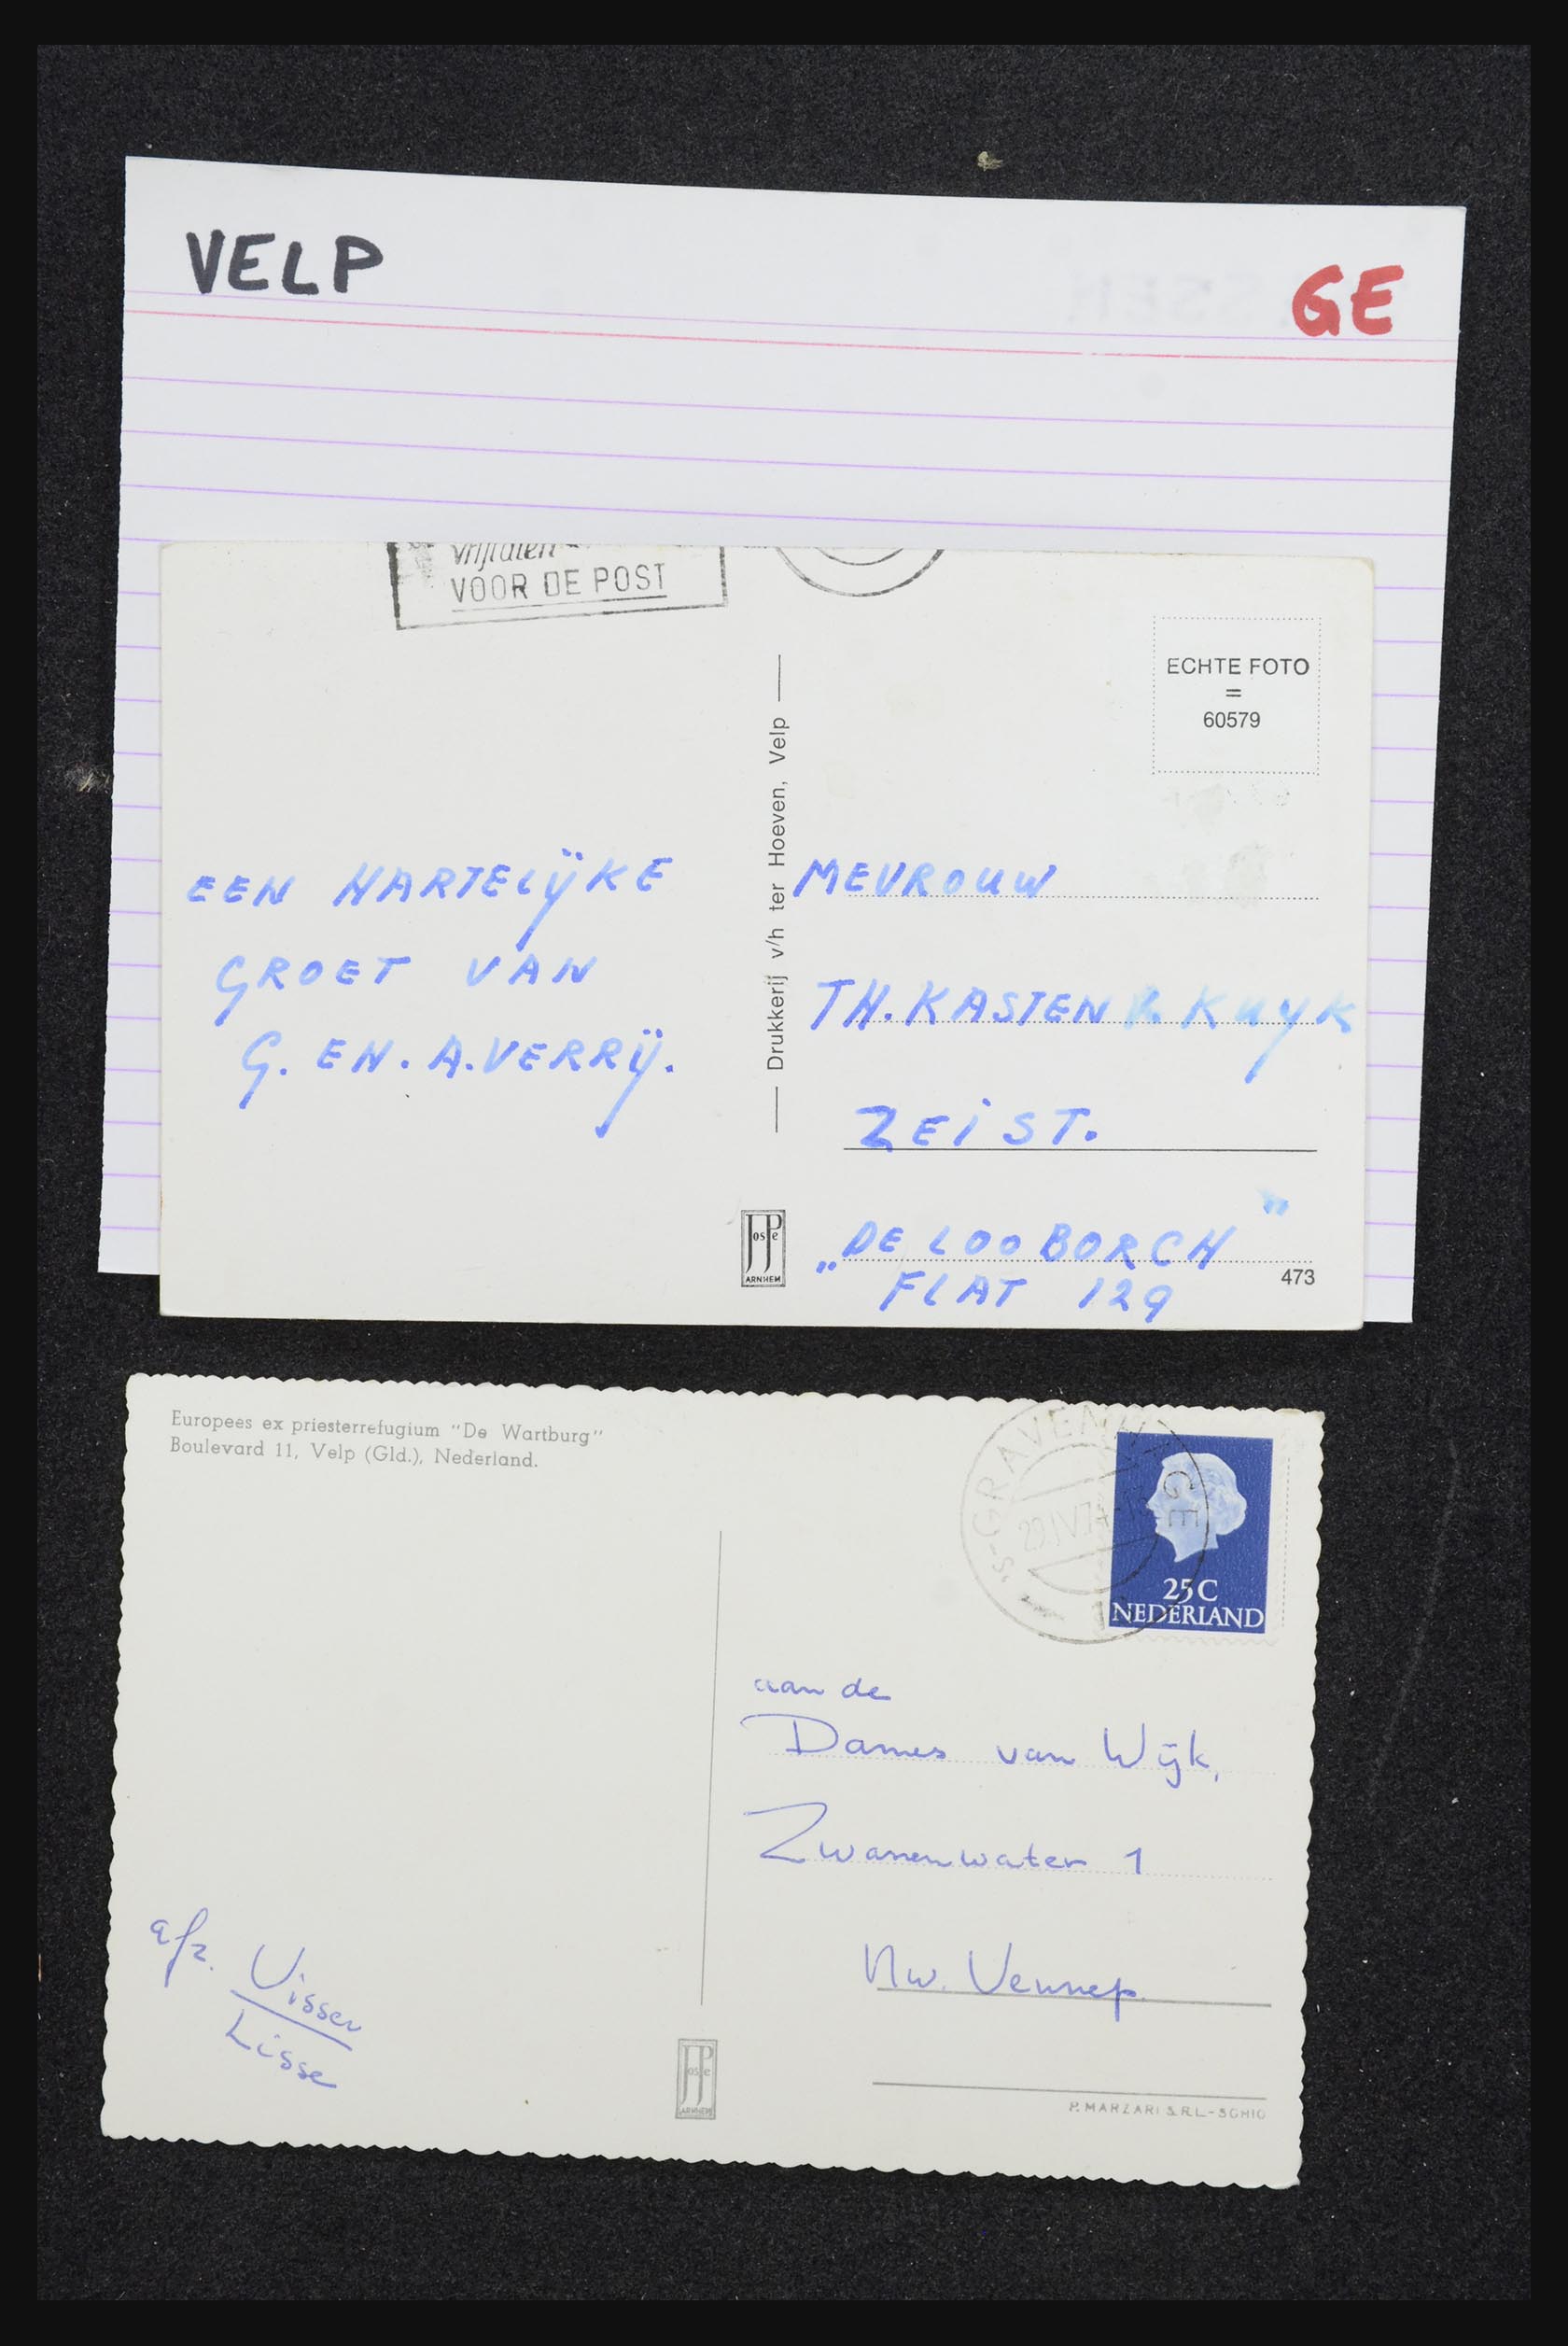 VELP
GE
VOOR DE POST
ECHTE FOTO
=
60579
Drukkerij v/h ter Hoeven, Velp
EEN HARTELIJKE
GROET VAN
G. EN. A. VERRIJ.
MEVROUW
TH. KASTEN KUYK
ZEIST.
„DE LOOBORCH"
FLAT 129
473
JosPe
ARNHEM
Europees ex priesterrefugium "De Wartburg"
Boulevard 11, Velp (Gld.), Nederland.
'S-GRAVENHAGE
25C
NEDERLAND
aan de
Dames van Wijk,
Zwanenwater 1
Nw. Vennep.
afz. Visser
Lisse
JosPe
ARNHEM
P. MARZARI S.R.L-SCHIO